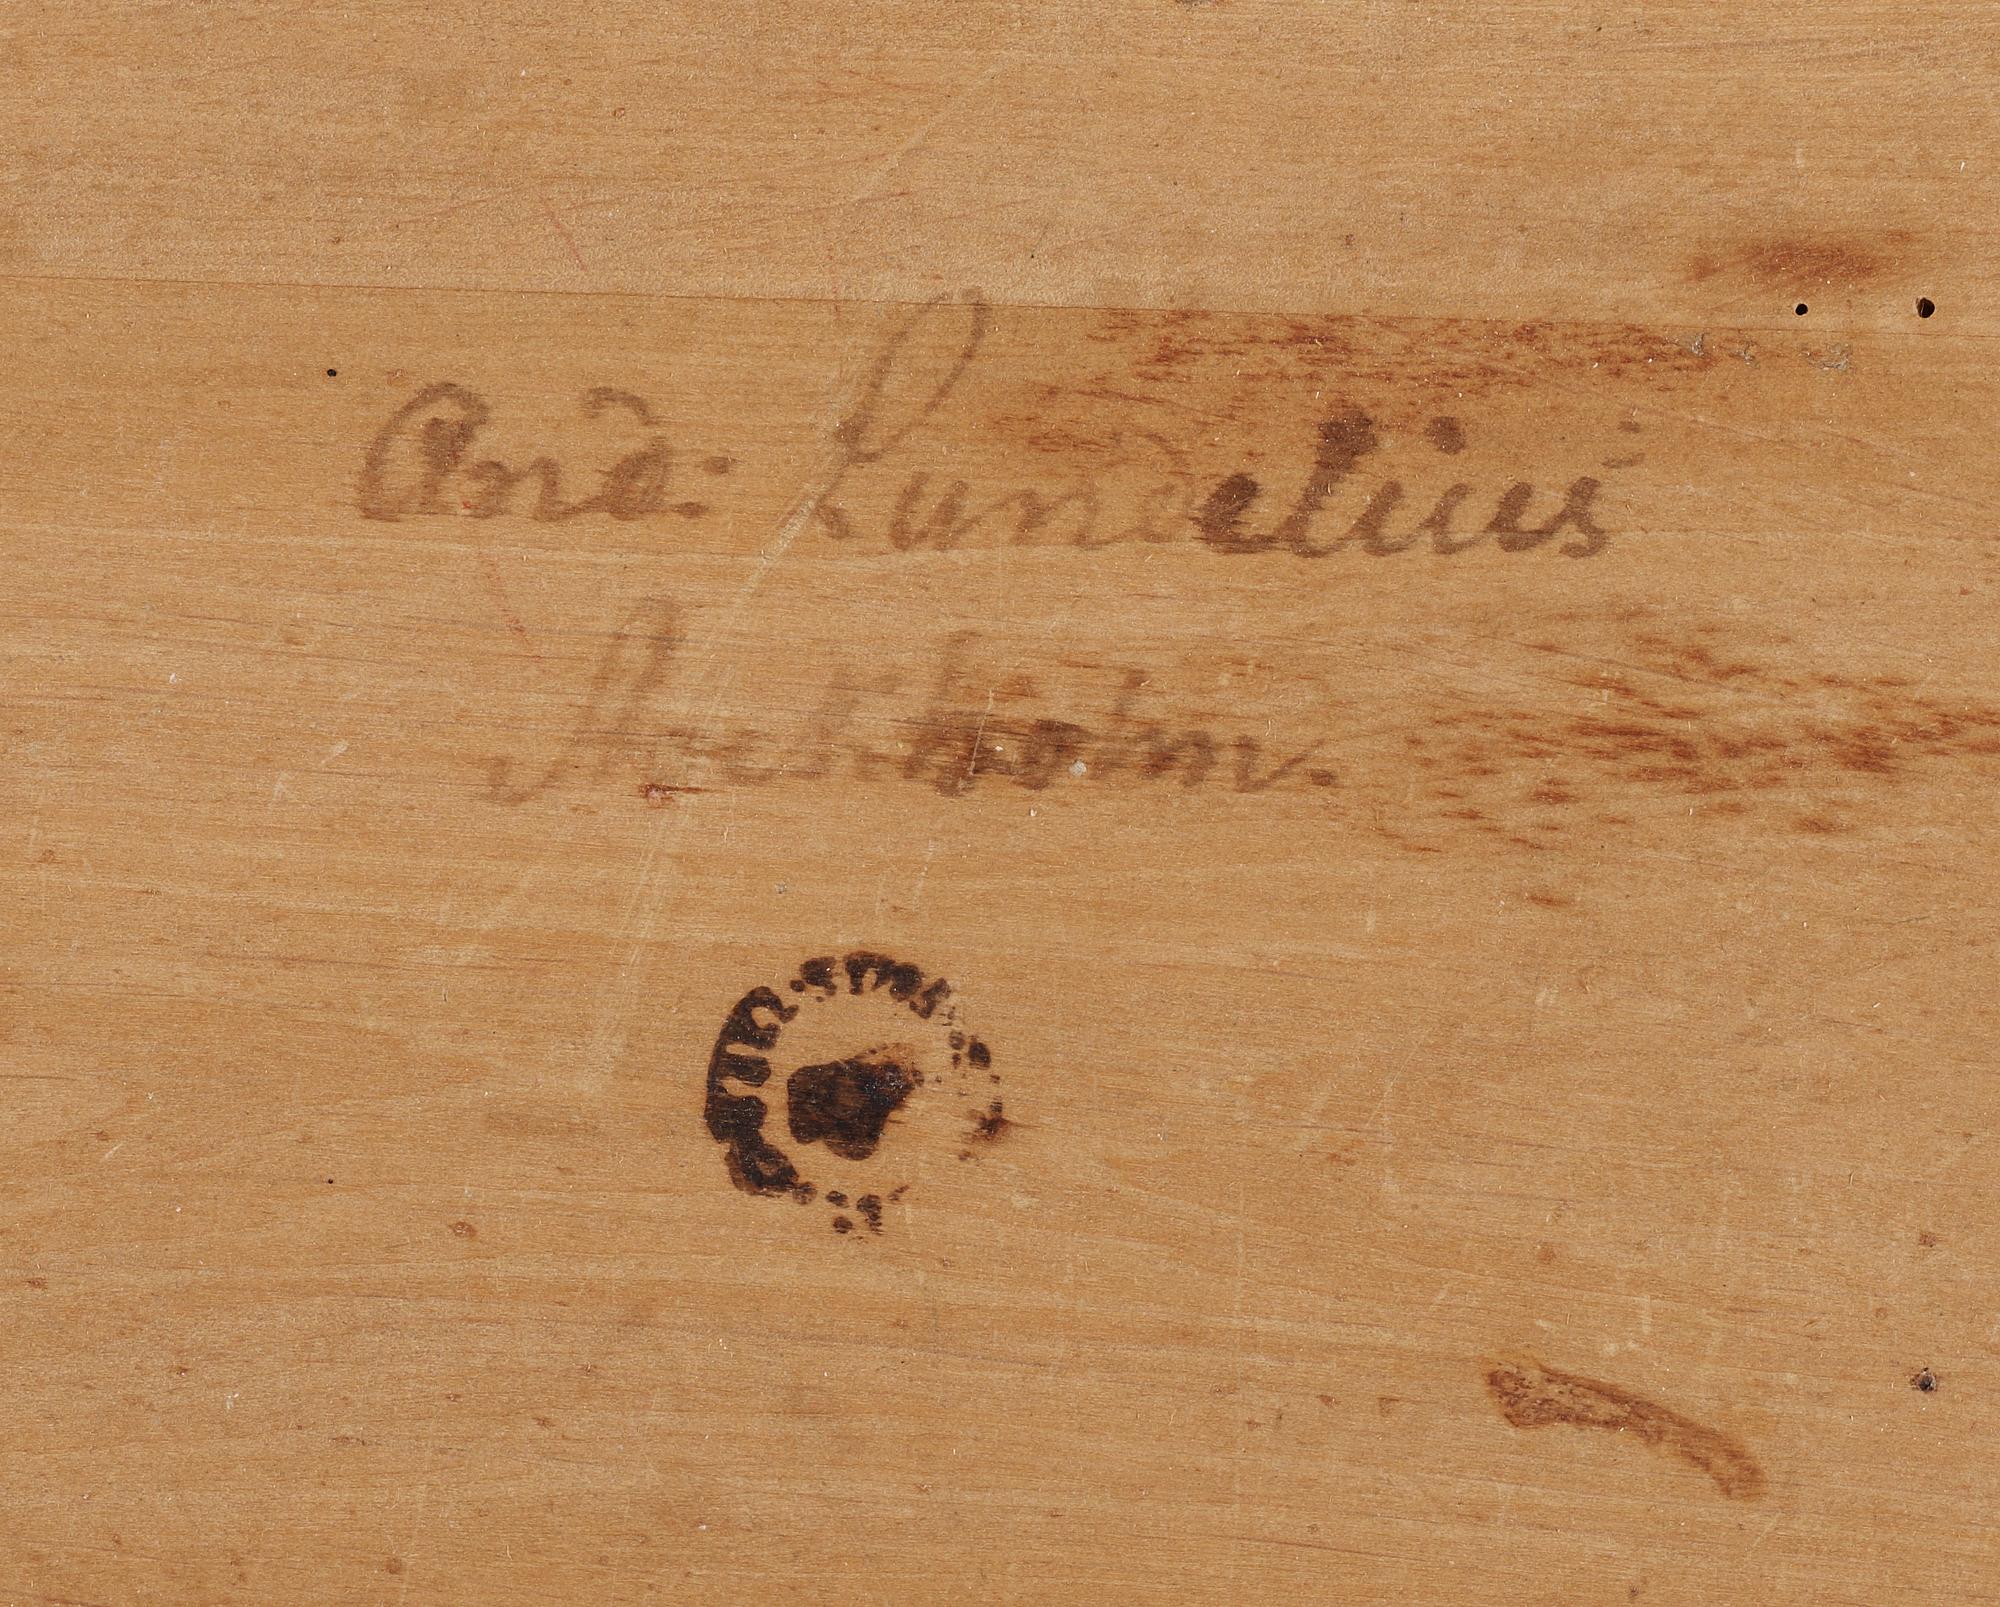 And: Lundelius
Stockholm.